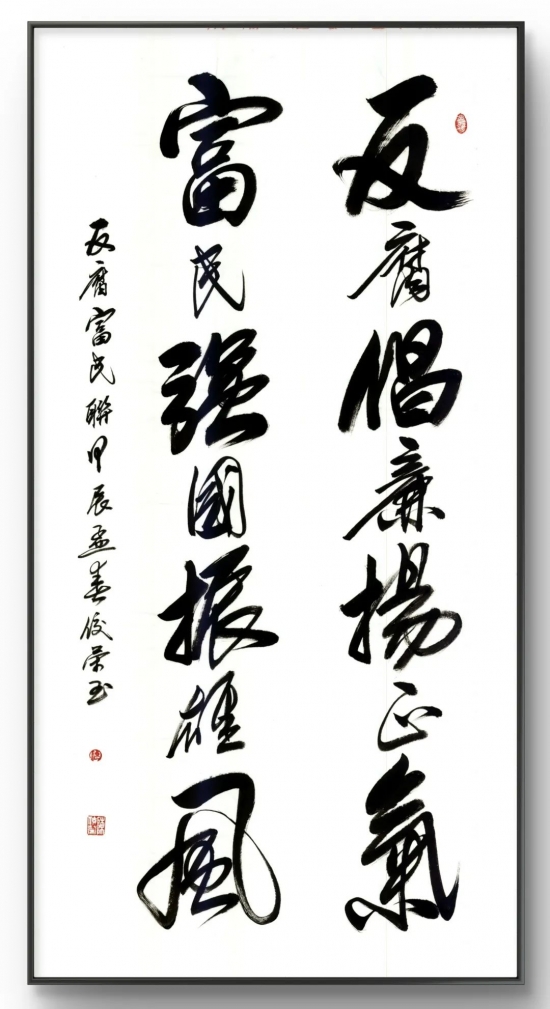 反腐倡廉揚正氣
富民強國振雄風
反腐富民聯甲辰孟春俊榮書